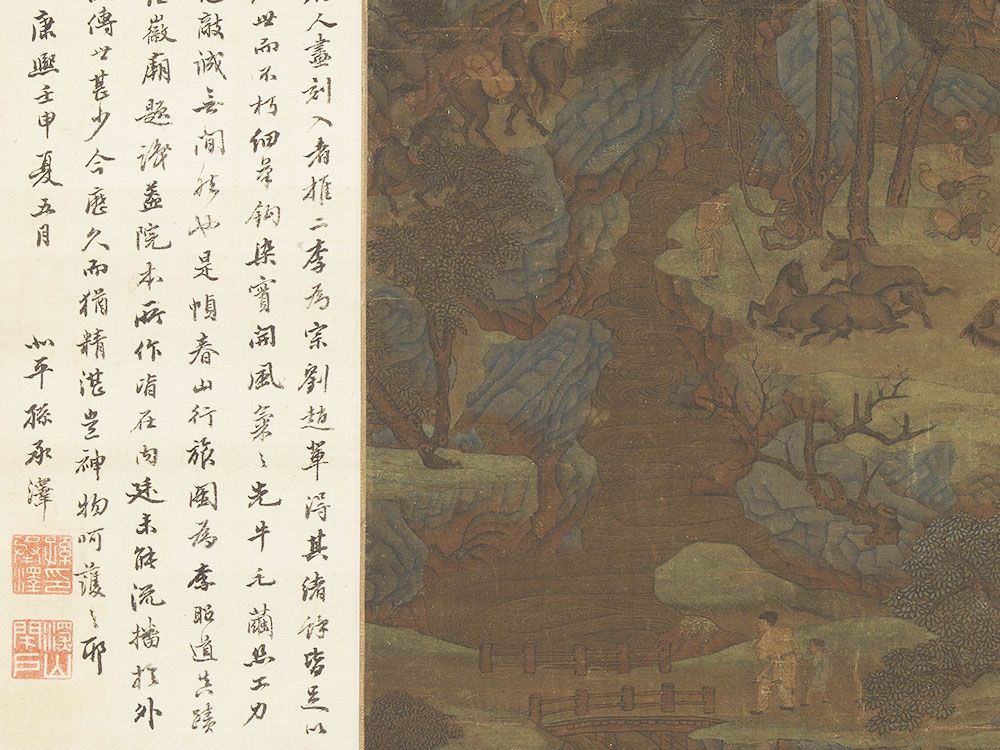 人畫刻入者推二李為宗劉趙輩得其緒餘皆足以
世而不朽細筆鈎染實開風氣之先牛毛繭絲工力
敲誠無間然也是幀春山行旅圖為李昭道真蹟
徽廟題識蓋院本所作皆在內廷未能流播於外
傳世甚少今歷久而猶精湛豈神物呵護之耶
康熙壬申夏五月 北平孫承澤
孫承澤印